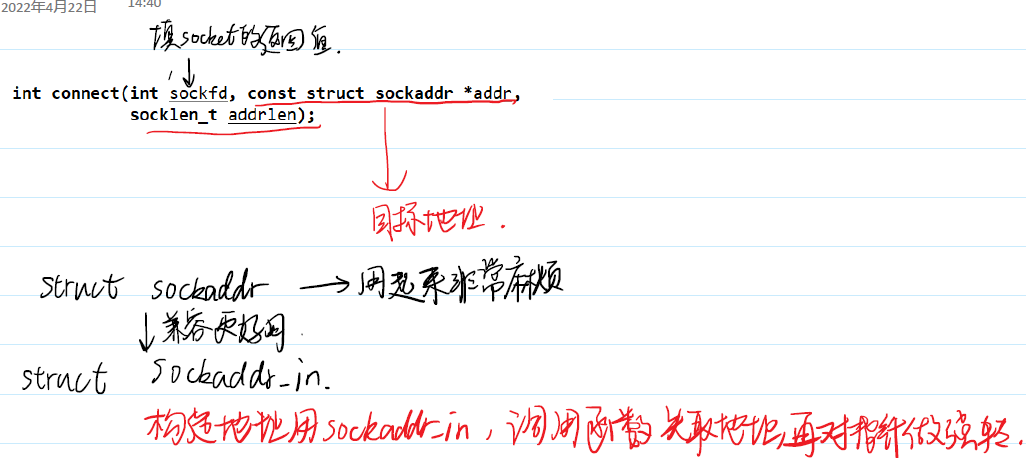 2022年4月22日 14:40
填socket的返回值.
int connect(int sockfd, const struct sockaddr *addr,
socklen_t addrlen);
目标地址.
struct sockaddr → 用起来非常麻烦
↓兼容更好用.
struct sockaddr_in.
构造地址用sockaddr_in, 调用函数先取地址,再对指针做强转.